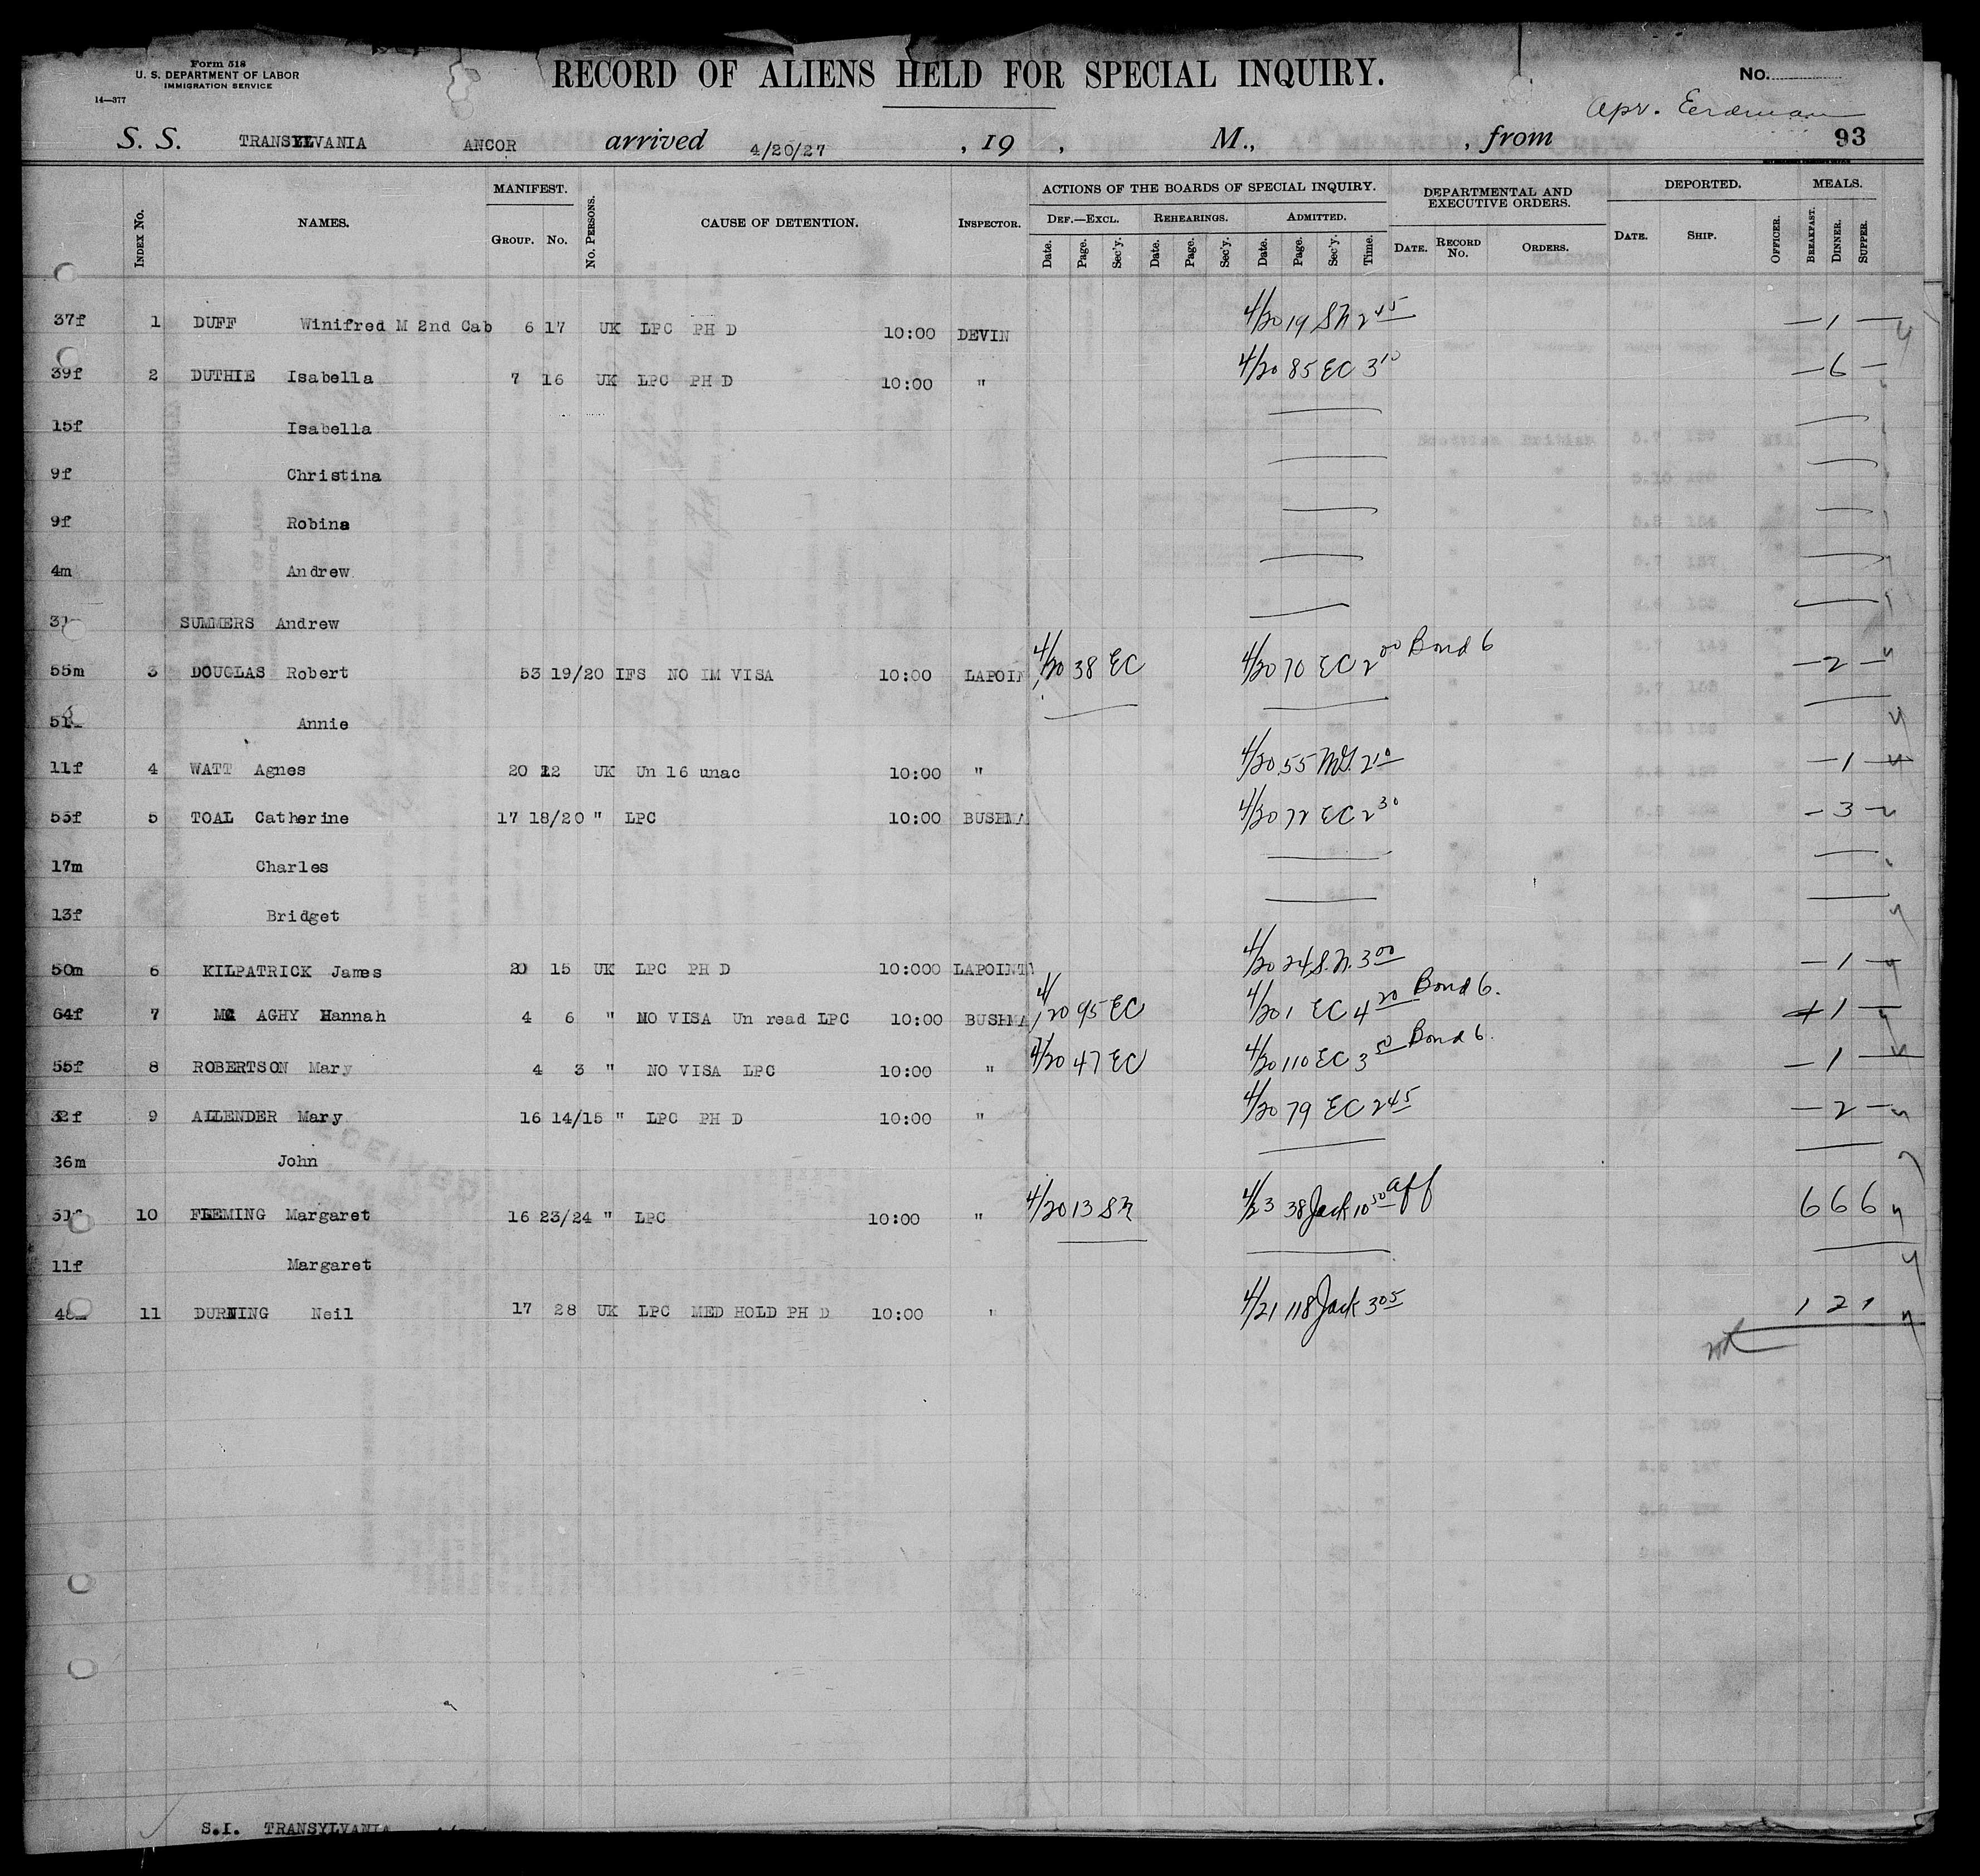 Form 518
U. S. DEPARTMENT OF LABOR
IMMIGRATION SERVICE
14—377
RECORD OF ALIENS HELD FOR SPECIAL INQUIRY.
No.
Apr. Erdman
S. S. TRANSYLVANIA ANCOR arrived 4/20/27 , 19 , M., , from 93
Index No. NAMES. MANIFEST. Group. No. No. Persons. CAUSE OF DETENTION. Inspector. ACTIONS OF THE BOARDS OF SPECIAL INQUIRY. Def.—Excl. Date. Page. Sec'y. Rehearings. Date. Page. Sec'y. Admitted. Date. Page. Sec'y. Time. DEPARTMENTAL AND EXECUTIVE ORDERS. Date. Record No. Orders. DEPORTED. Date. Ship. Officer. MEALS. Breakfast. Dinner. Supper.
37f 1 DUFF Winifred M 2nd Cab 6 17 UK LPC PH D 10:00 DEVIN 4/20 19 SN 2 45 — 1 —
39f 2 DUTHIE Isabella 7 16 UK LPC PH D 10:00 " 4/20 85 EC 3 10 — 6 —
15f Isabella
9f Christina
9f Robina
4m Andrew
SUMMERS Andrew
55m 3 DOUGLAS Robert 53 19/20 IFS NO IM VISA 10:00 LAPOIN 4/20 38 EC 4/20 70 EC 2 00 Bond 6 — 2 —
Annie
11f 4 WATT Agnes 20 22 UK Un 16 unac 10:00 " 4/20 55 MG. 2 10 — 1 —
55f 5 TOAL Catherine 17 18/20 " LPC 10:00 BUSHMA 4/20 72 EC 2 30 — 3 —
17m Charles
13f Bridget
50m 6 KILPATRICK James 20 15 UK LPC PH D 10:000 LAPOINT 4/20 24 S.N. 3 00 — 1 —
64f 7 MC AGHY Hannah 4 6 " NO VISA Un read LPC 10:00 BUSHMA 4/20 95 EC 4/20 1 EC 4 20 Bond 6. 1 —
55f 8 ROBERTSON Mary 4 3 " NO VISA LPC 10:00 " 4/20 47 EC 4/20 110 EC 3 50 Bond 6. — 1 —
32f 9 ALLENDER Mary 16 14/15 " LPC PH D 10:00 " 4/20 79 EC 2 45 — 2 —
26m John
10 FLEMING Margaret 16 23/24 " LPC 10:00 " 4/20 13 SN 4/23 38 Jack 10 50 aff 6 6 6
11f Margaret
11 DURNING Neil 17 28 UK LPC MED HOLD PH D 10:00 " 4/21 118 Jack 3 05 1 2 1
S.I. TRANSYLVANIA